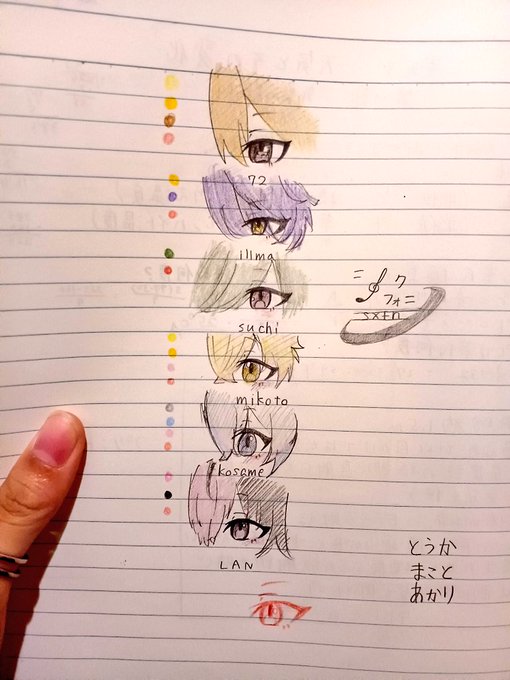 72
illma
suchi
ニ
ク
フォニ
sxfn
mikoto
kosame
LAN
とうか
まこと
あかり